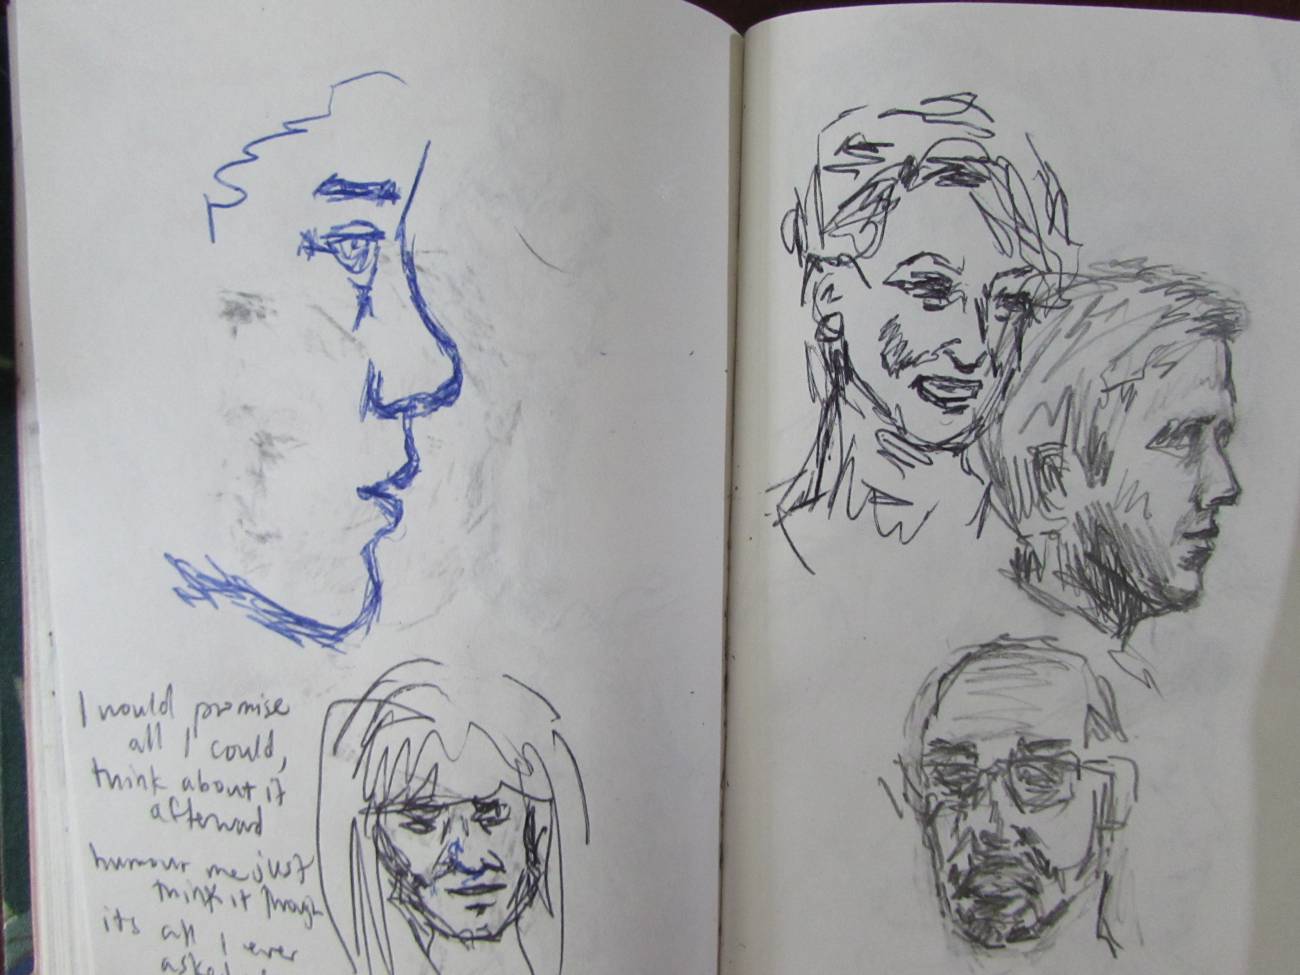 I would promise
all I could,
think about it
afterward
humour me just
think it through
its all I ever
asked